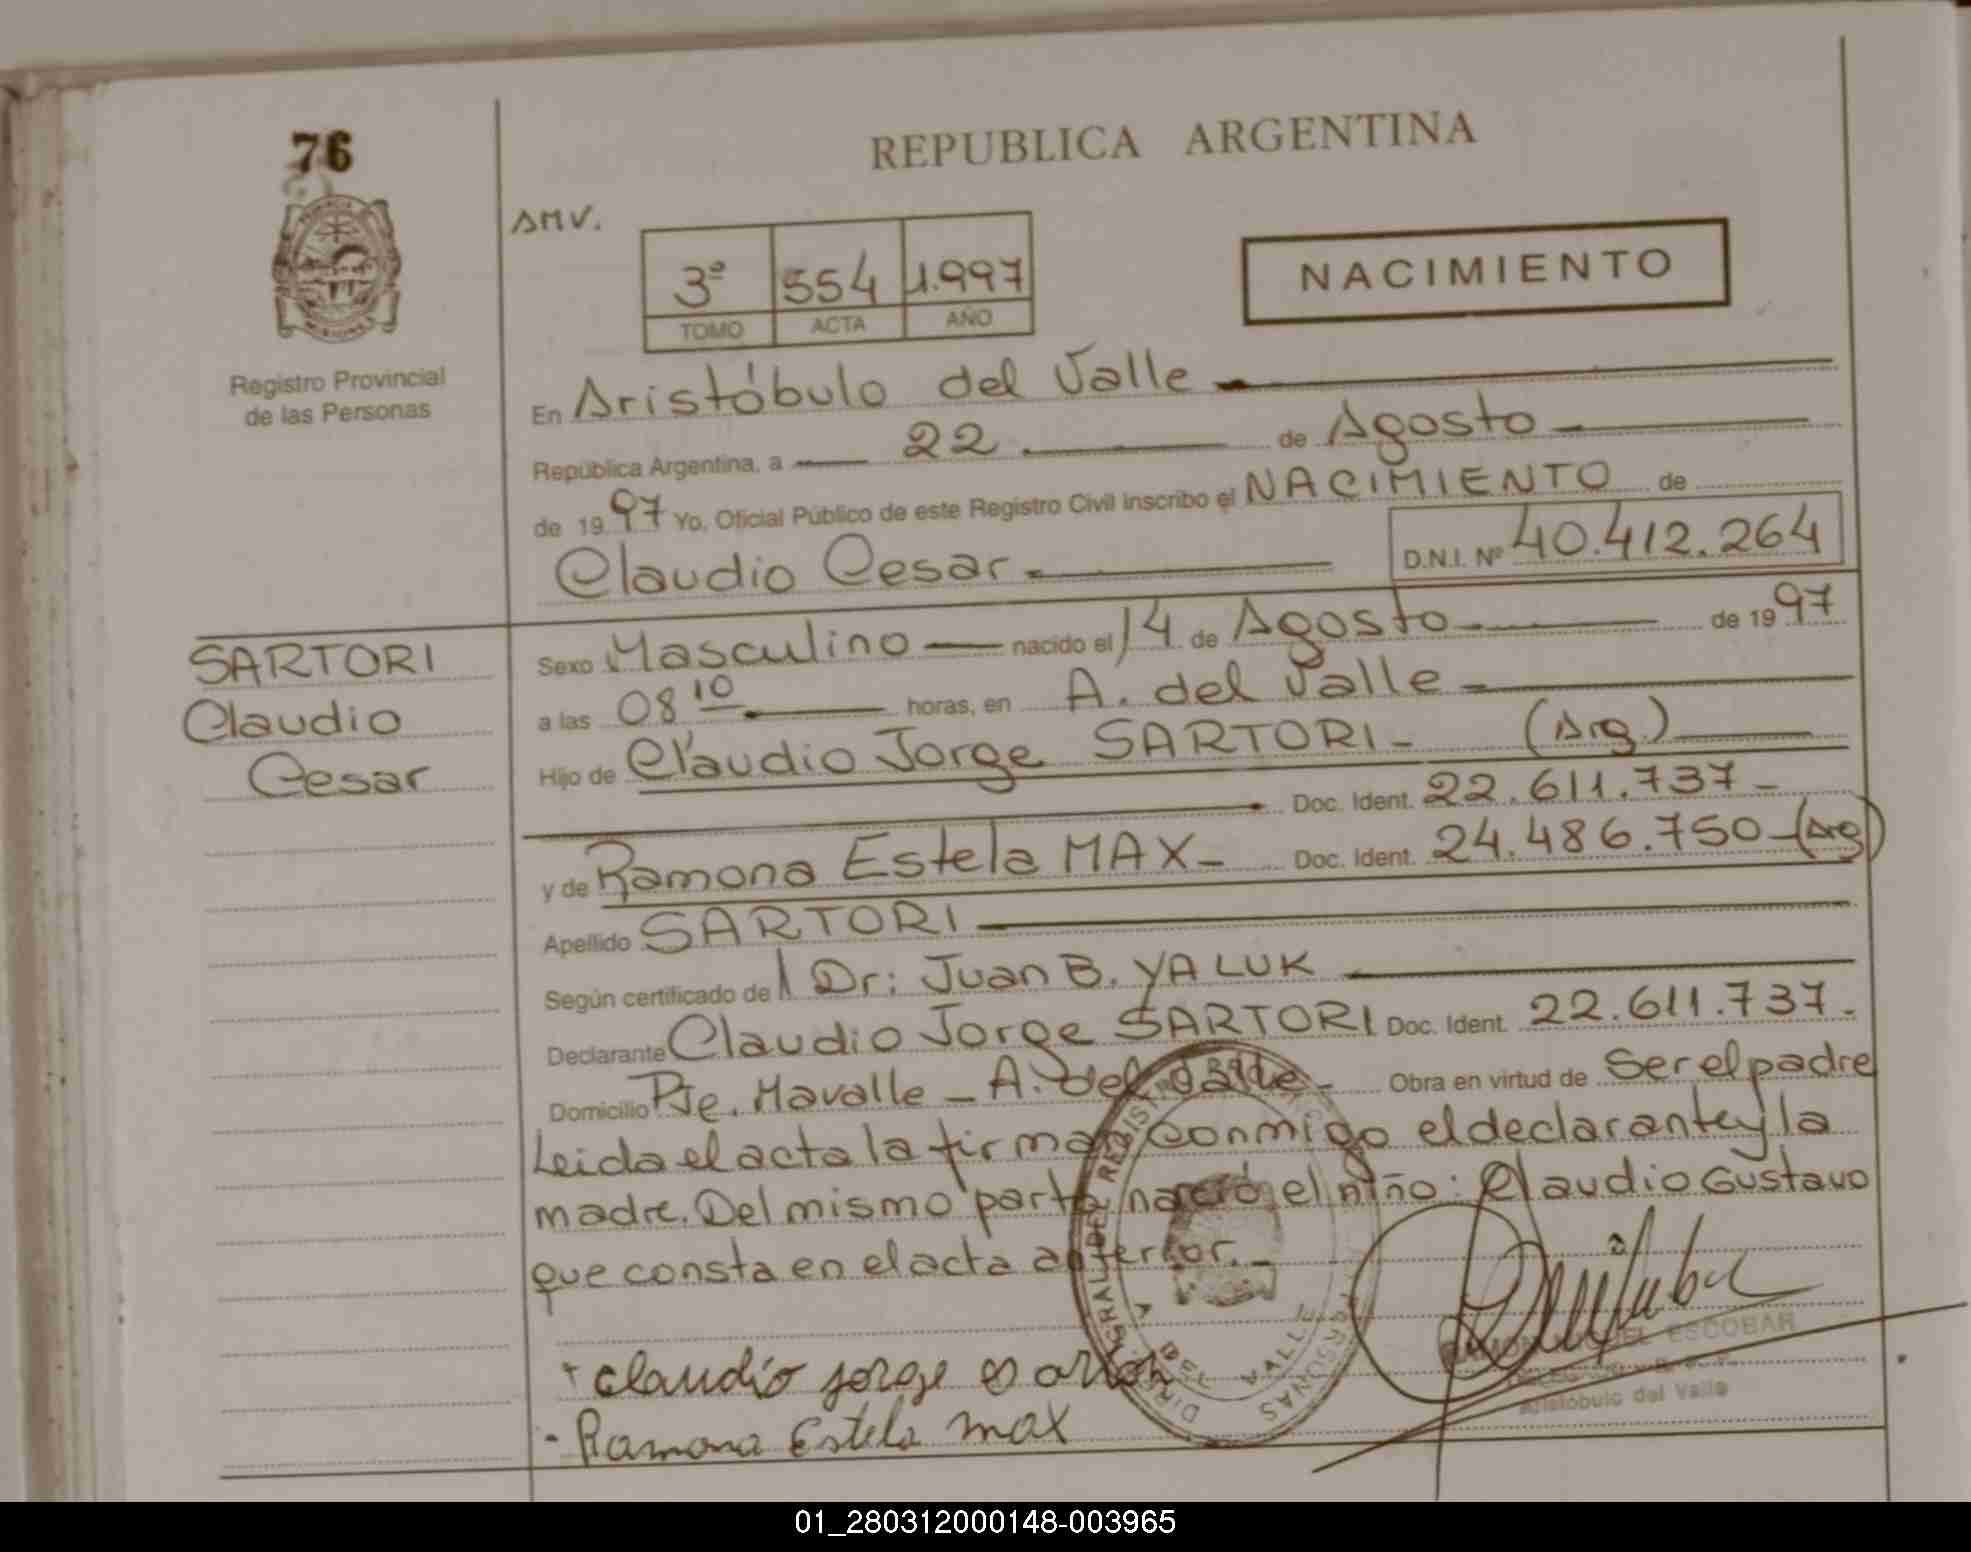 76
REPUBLICA ARGENTINA
AMV.
3º 554 1.997
TOMO ACTA AÑO
NACIMIENTO
Registro Provincial
de las Personas
En Aristóbulo del Valle
República Argentina, a 22 de Agosto
de 1997 Yo, Oficial Público de este Registro Civil inscribo el NACIMIENTO de
Claudio Cesar D.N.I. Nº 40.412.264
SARTORI
Claudio
Cesar
Sexo Masculino nacido el 14 de Agosto de 1997
a las 08 10 horas, en A. del Valle
Hijo de Claudio Jorge SARTORI - (Arg.)
Doc. Ident. 22.611.737 -
y de Ramona Estela MAX - Doc. Ident. 24.486.750 - (Arg)
Apellido SARTORI
Según certificado del Dr: Juan B. YALUK
Declarante Claudio Jorge SARTORI Doc. Ident. 22.611.737 -
Domicilio Pje. Mavalle - A. del Valle - Obra en virtud de ser el padre
Leida el acta la firman conmigo el declarante y la
madre. Del mismo parto nació el niño: Claudio Gustavo
que consta en el acta anterior. -
DIREC. GRAL. DEL REGISTRO PERSONAS
A. DEL VALLE
claudio jorge sartori
- Ramona Estela max
RAMON MIGUEL ESCOBAR
Aristóbulo del Valle
01_280312000148-003965